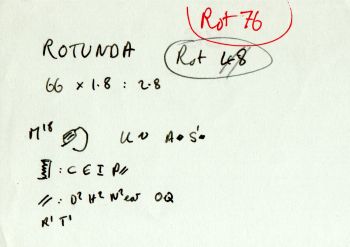 Rot 76
ROTUNDA Rot 48
66 × 1·8 : 2·8
M'18 U N A·S'·
: C E I P//
// : D² H² N²ear OQ
R' T'